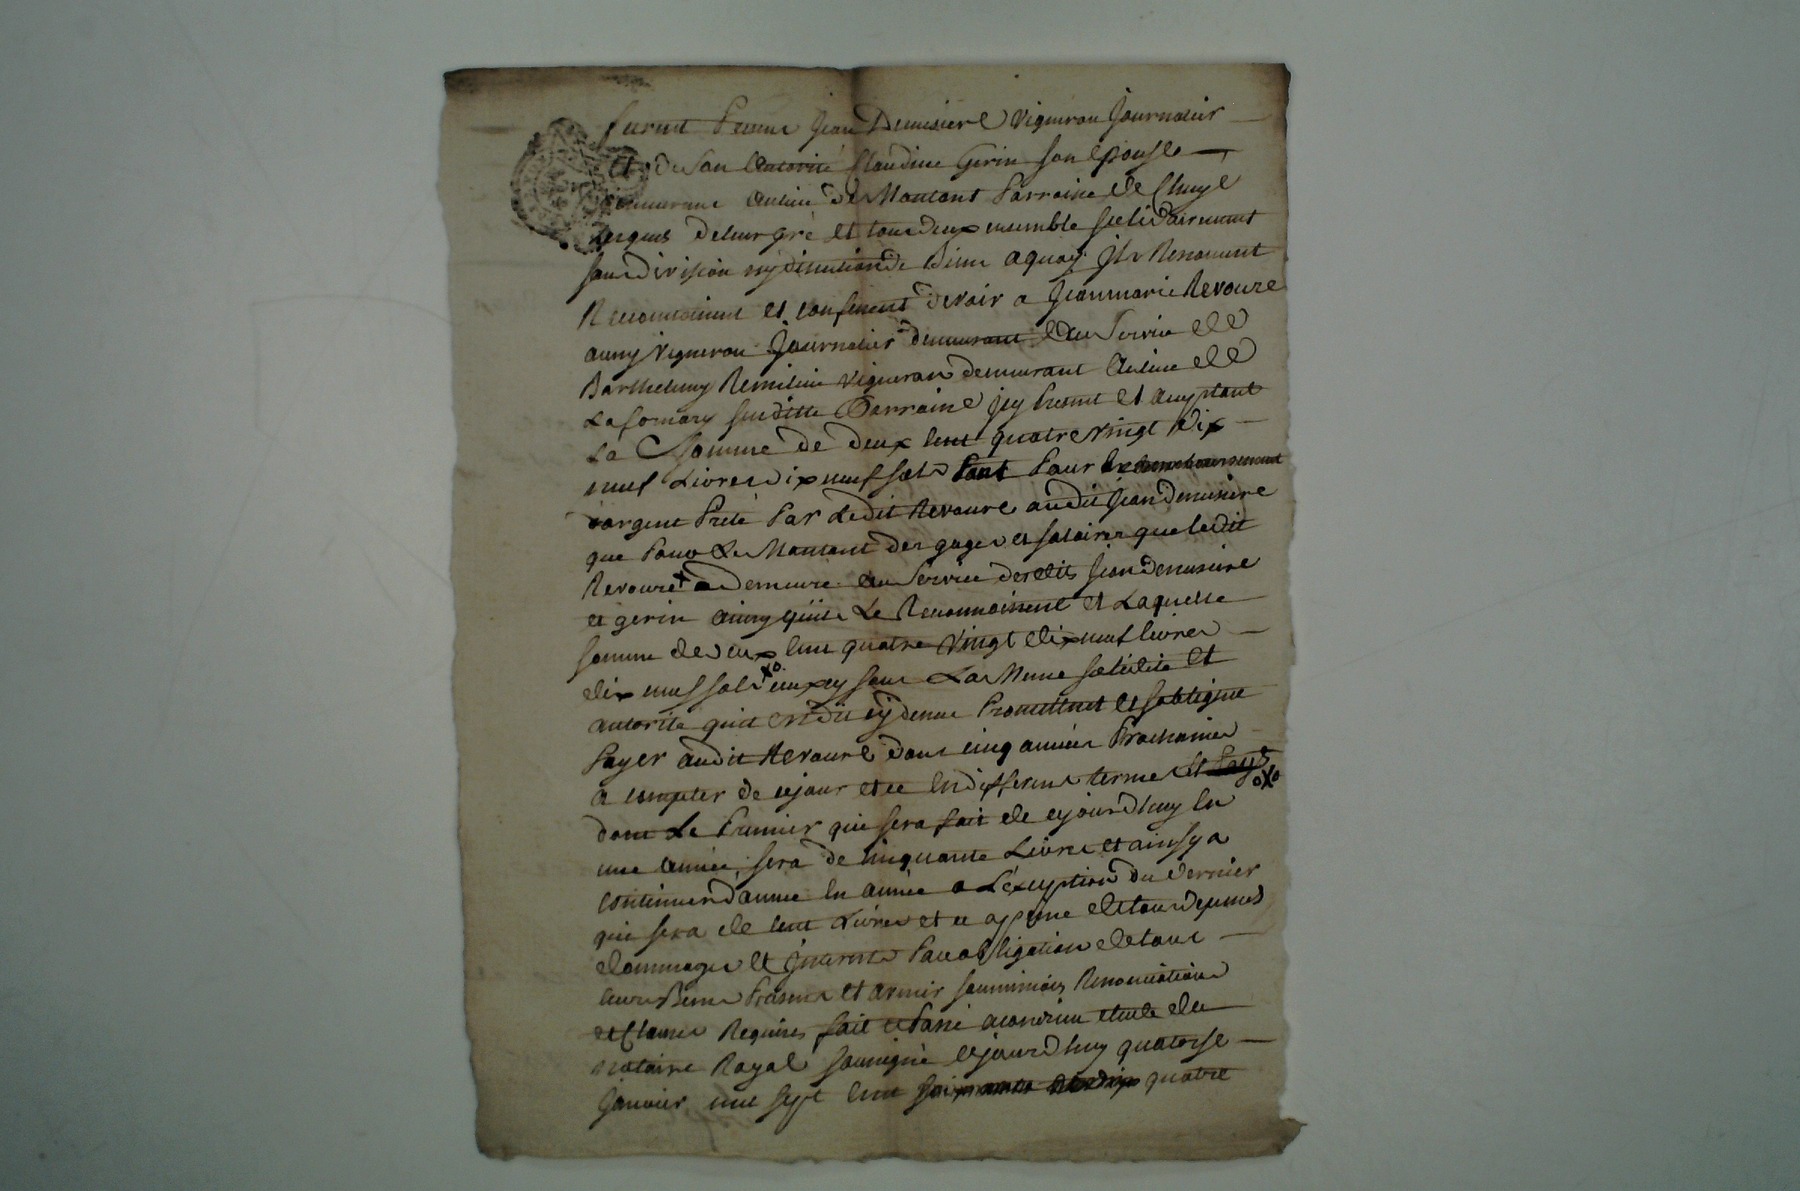 furent Presens Jean Demisiere Vigneron Journalier
et de son autorité Claudine Gerin son Epouse
demeurans au lieu de Montant Parroisse de Chuye
lesquels de leur gré et tous deux ensemble solidairement
sans division ny discution de Biens a quoy ils Renoncent
Reconnoissent et confessent devoir a Jean marie Revoure
aussy Vigneron Journalier demeurant au Service de
Barthelemy Remilieu Vigneron demeurant au lieu de
La fornary susditte Parroisse icy Present et acceptant
La Somme de deux Cent quatre vingt dix
neuf Livres dix neuf sols tant Pour
d'argent Preté Par Ledit Revoure audit Jean Demisiere
que Pour Le Montant des gages et salaires que ledit
Revoure a demeuré au Service desdits Jean Demisiere
et gerin ainsy qu'ils Le Reconnoissent et Laquelle
somme de deux Cent quatre Vingt dix neuf livres
dix neuf sols iceux sous La Meme solidité et
autorité qu'il est dit cy dessus Promettent et s'obligent
Payer audit Revoure dans cinq années Prochaines
a compter de ce jour et ce En differens termes et
dont Le Premier qui sera fait de cejourd'huy En
une année, sera de Cinquante Livres et ainsy a
continuer d'année En année a L'exception du dernier
qui sera de Cent Livres et ce a peine de tous depens
dommages et interests Par obligation de tous
leurs Biens Presens et avenir soumissions Renonciations
et Clauses Requises fait et Passé a Condrieu etude du
notaire Royal soussigné cejourd'huy quatorse
Janvier mil sept Cent soixante quatre